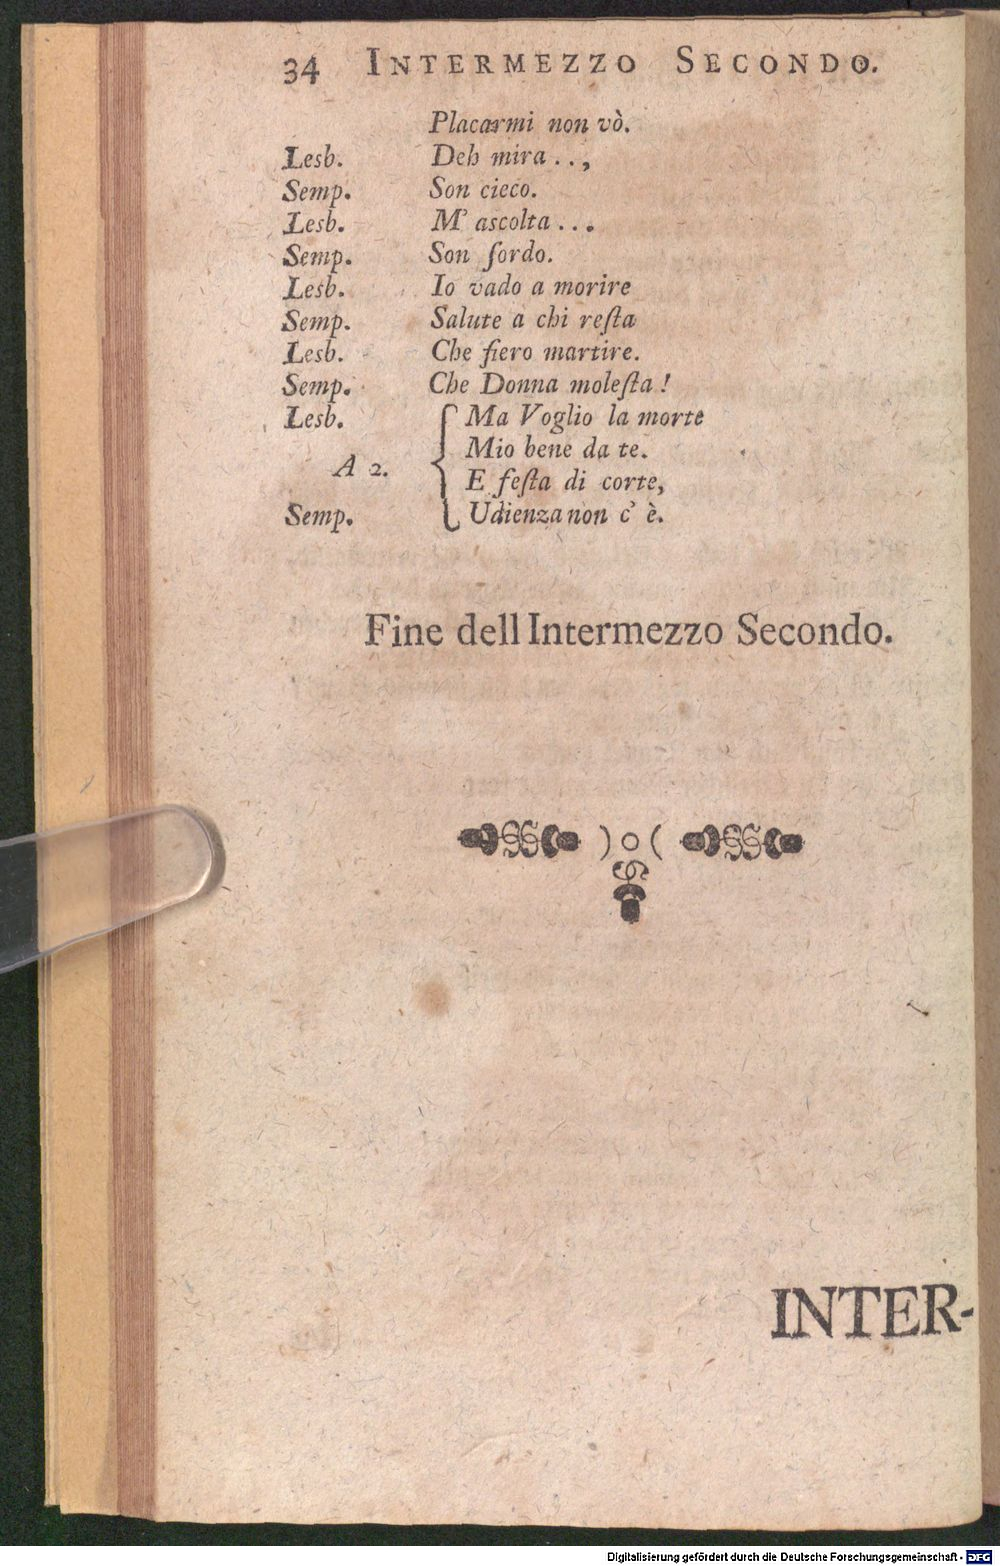 34 INTERMEZZO SECONDO.
Placarmi non vò.
Lesb. Deh mira . . ,
Semp. Son cieco.
Lesb. M' ascolta . . .
Semp. Son ſordo.
Lesb. Io vado a morire
Semp. Salute a chi reſta
Lesb. Che fiero martire.
Semp. Che Donna moleſta !
Lesb. Ma Voglio la morte
Mio bene da te.
A 2.
E feſta di corte,
Semp. Udienza non c' è.
Fine dell Intermezzo Secondo.
) o (
INTER-
Digitalisierung gefördert durch die Deutsche Forschungsgemeinschaft - DFG